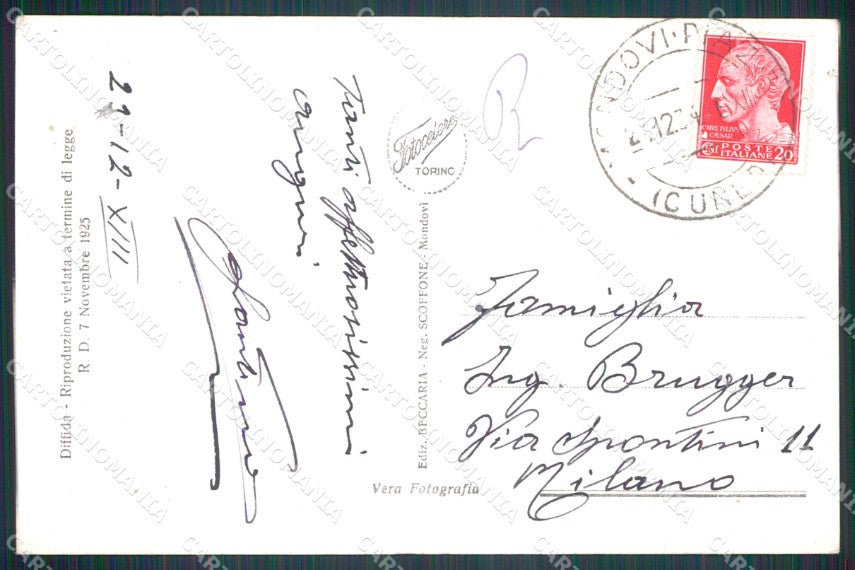 21-12-XIII
Tanti affettuosissimi
auguri
Diffida - Riproduzione vietata a termine di legge
R. D. 7 Novembre 1925
Fotocelere
TORINO
Ediz. BECCARIA - Neg. SCOFFONE - Mondovì
Vera Fotografia
MONDOVI
12.34
(CUNEO)
CAIVS IVLIVS
CAESAR
POSTE
ITALIANE
20
Famiglia
Ing. Brugger
Via Spontini 11
Milano
CARTOLINOMANIA